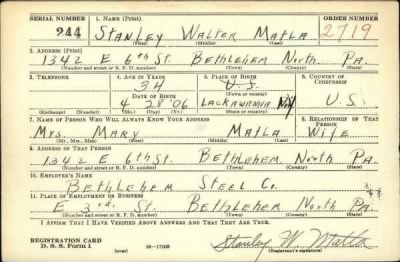 SERIAL NUMBER 1. NAME (Print) ORDER NUMBER
244 STANLEY WALTER MATLA 2719
(First) (Middle) (Last)
2. ADDRESS (Print)
1342 E 6th St. BETHLEHEM NORTH PA.
(Number and street or R. F. D. number) (Town) (County) (State)
3. TELEPHONE 4. AGE IN YEARS 5. PLACE OF BIRTH 6. COUNTRY OF CITIZENSHIP
34 U.S.
DATE OF BIRTH (Town or county)
4 28 '06 LACKAWANNA NY U.S.
(Exchange) (Number) (Mo.) (Day) (Yr.) (State or country)
7. NAME OF PERSON WHO WILL ALWAYS KNOW YOUR ADDRESS 8. RELATIONSHIP OF THAT PERSON
MRS. MARY MATLA WIFE
(Mr., Mrs., Miss) (First) (Middle) (Last)
9. ADDRESS OF THAT PERSON
1342 E 6th ST. BETHLEHEM NORTH PA.
(Number and street or R. F. D. number) (Town) (County) (State)
10. EMPLOYER'S NAME
BETHLEHEM STEEL Co.
11. PLACE OF EMPLOYMENT OR BUSINESS
E 3rd. ST. BETHLEHEM NORTH PA.
(Number and street or R. F. D. number) (Town) (County) (State)
I AFFIRM THAT I HAVE VERIFIED ABOVE ANSWERS AND THAT THEY ARE TRUE.
REGISTRATION CARD
D. S. S. Form 1 (over) 16-17105 Stanley W. Matla
(Registrant's signature)